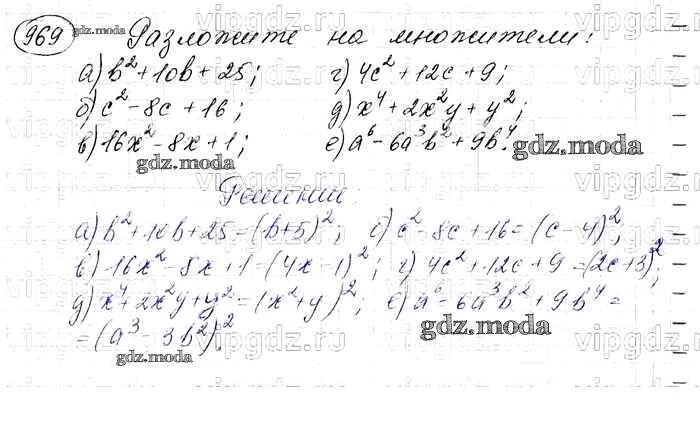 969 gdz.moda Разложите на множители:
а) b² + 10b + 25; г) 4c² + 12c + 9;
б) c² - 8c + 16; д) x⁴ + 2x²y + y²;
в) 16x² - 8x + 1; е) a⁶ - 6a³b² + 9b⁴. gdz.moda
gdz.moda
а) b² + 10b + 25 = (b+5)²; б) c² - 8c + 16 = (c-4)²;
в) 16x² - 8x + 1 = (4x-1)²; г) 4c² + 12c + 9 = (2c+3)²;
д) x⁴ + 2x²y + y² = (x²+y)²; е) a⁶ - 6a³b² + 9b⁴ =
= (a³ - 3b²)². gdz.moda
gdz.moda
vipgdz.ru